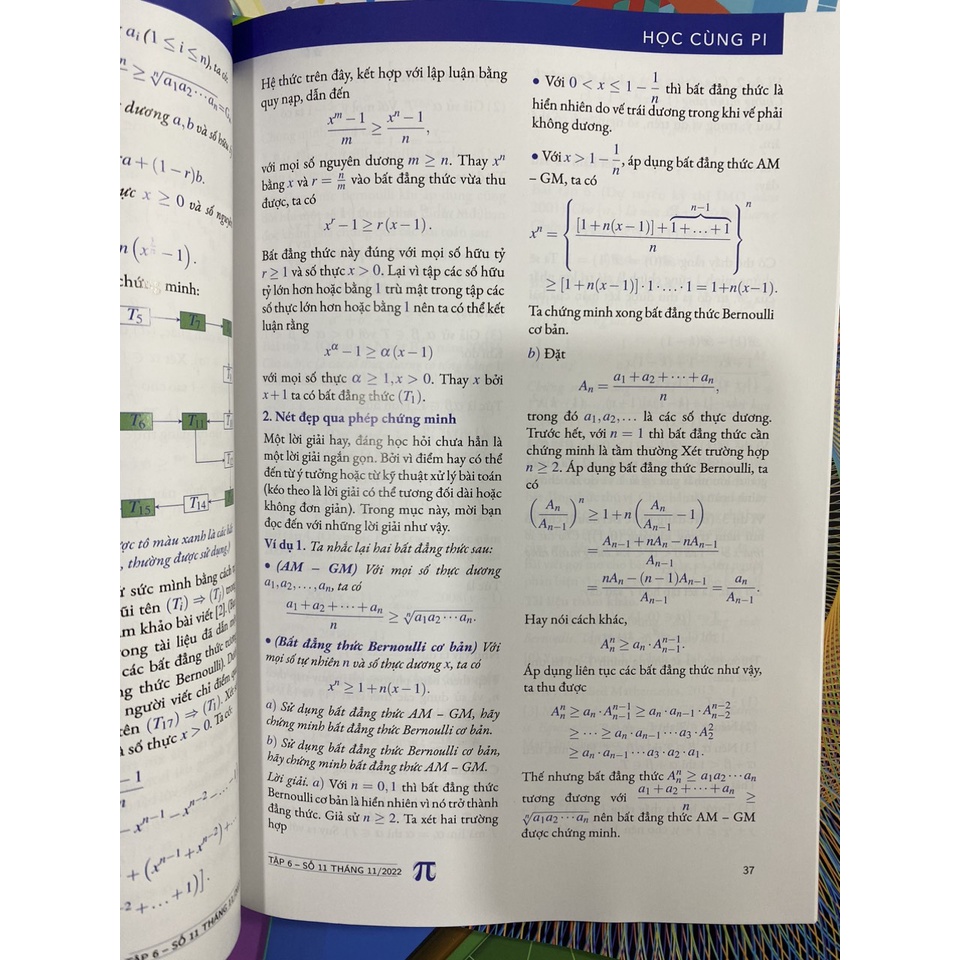 a_i (1 ≤ i ≤ n), ta có
≥ \sqrt[n]{a_1 a_2 ⋯ a_n} =
dương a, b và số hữu
a + (1 − r)b.
x ≥ 0 và số nguyên
minh:
T_5 T_7
T_6 T_11
T_15 T_14
tô màu xanh là các
thường được sử dụng.)
sức mình bằng cách
tên (T_i) ⇒ (T_j)
khảo bài viết [2].
tài liệu đã dẫn
các bất đẳng thức
thức Bernoulli).
người viết chỉ điểm
(T_17) ⇒ (T_1). Xét
số thực x > 0. Ta có
− x^{n−1} − x^{n−2} − … − 1
+ (x^{n−1} + x^{n−2}) + …
+ … + 1)].
TẬP 6 – SỐ 11 THÁNG
HỌC CÙNG PI
Hệ thức trên đây, kết hợp với lập luận bằng
quy nạp, dẫn đến
\frac{x^m − 1}{m} ≥ \frac{x^n − 1}{n},
với mọi số nguyên dương m ≥ n. Thay x^n
bằng x và r = \frac{n}{m} vào bất đẳng thức vừa thu
được, ta có
x^r − 1 ≥ r(x − 1).
Bất đẳng thức này đúng với mọi số hữu tỷ
r ≥ 1 và số thực x > 0. Lại vì tập các số hữu
tỷ lớn hơn hoặc bằng 1 trù mật trong tập các
số thực lớn hơn hoặc bằng 1 nên ta có thể kết
luận rằng
x^α − 1 ≥ α(x − 1)
với mọi số thực α ≥ 1, x > 0. Thay x bởi
x + 1 ta có bất đẳng thức (T_1).
2. Nét đẹp qua phép chứng minh
Một lời giải hay, đáng học hỏi chưa hẳn là
một lời giải ngắn gọn. Bởi vì điểm hay có thể
đến từ ý tưởng hoặc từ kỹ thuật xử lý bài toán
(kéo theo là lời giải có thể tương đối dài hoặc
không đơn giản). Trong mục này, mời bạn
đọc đến với những lời giải như vậy.
Ví dụ 1. Ta nhắc lại hai bất đẳng thức sau:
• (AM – GM) Với mọi số thực dương
a_1, a_2, …, a_n, ta có
\frac{a_1 + a_2 + ⋯ + a_n}{n} ≥ \sqrt[n]{a_1 a_2 ⋯ a_n}.
• (Bất đẳng thức Bernoulli cơ bản) Với
mọi số tự nhiên n và số thực dương x, ta có
x^n ≥ 1 + n(x − 1).
a) Sử dụng bất đẳng thức AM – GM, hãy
chứng minh bất đẳng thức Bernoulli cơ bản.
b) Sử dụng bất đẳng thức Bernoulli cơ bản,
hãy chứng minh bất đẳng thức AM – GM.
Lời giải. a) Với n = 0, 1 thì bất đẳng thức
Bernoulli cơ bản là hiển nhiên vì nó trở thành
đẳng thức. Giả sử n ≥ 2. Ta xét hai trường
hợp
• Với 0 < x ≤ 1 − \frac{1}{n} thì bất đẳng thức là
hiển nhiên do vế trái dương trong khi vế phải
không dương.
• Với x > 1 − \frac{1}{n}, áp dụng bất đẳng thức AM
– GM, ta có
x^n = \left\{ \frac{[1 + n(x − 1)] + \overbrace{1 + … + 1}^{n−1}}{n} \right\}^n
≥ [1 + n(x − 1)] · 1 · … · 1 = 1 + n(x − 1).
Ta chứng minh xong bất đẳng thức Bernoulli
cơ bản.
b) Đặt
A_n = \frac{a_1 + a_2 + ⋯ + a_n}{n},
trong đó a_1, a_2, … là các số thực dương.
Trước hết, với n = 1 thì bất đẳng thức cần
chứng minh là tầm thường Xét trường hợp
n ≥ 2. Áp dụng bất đẳng thức Bernoulli, ta
có
\left( \frac{A_n}{A_{n−1}} \right)^n ≥ 1 + n \left( \frac{A_n}{A_{n−1}} − 1 \right)
= \frac{A_{n−1} + nA_n − nA_{n−1}}{A_{n−1}}
= \frac{nA_n − (n − 1)A_{n−1}}{A_{n−1}} = \frac{a_n}{A_{n−1}}.
Hay nói cách khác,
A_n^n ≥ a_n · A_{n−1}^{n−1}.
Áp dụng liên tục các bất đẳng thức như vậy,
ta thu được
A_n^n ≥ a_n · A_{n−1}^{n−1} ≥ a_n · a_{n−1} · A_{n−2}^{n−2}
≥ ⋯ ≥ a_n · a_{n−1} ⋯ a_3 · A_2^2
≥ a_n · a_{n−1} ⋯ a_3 · a_2 · a_1.
Thế nhưng bất đẳng thức A_n^n ≥ a_1 a_2 ⋯ a_n
tương đương với \frac{a_1 + a_2 + ⋯ + a_n}{n} ≥
\sqrt[n]{a_1 a_2 ⋯ a_n} nên bất đẳng thức AM – GM
được chứng minh.
TẬP 6 – SỐ 11 THÁNG 11/2022 π
37